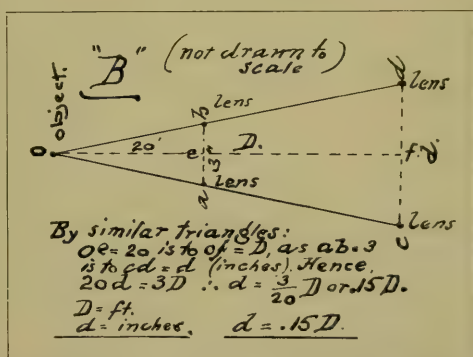 object.
"B"
(not drawn to
scale)
d lens
b lens
O
20'
e
3"
D.
f. d.
a lens
c lens
By similar triangles:
oe=20 is to of=D, as ab=3
is to cd=d (inches). Hence,
20d=3D ∴ d=3/20 D or .15D.
D=ft.
d=inches. d=.15D.